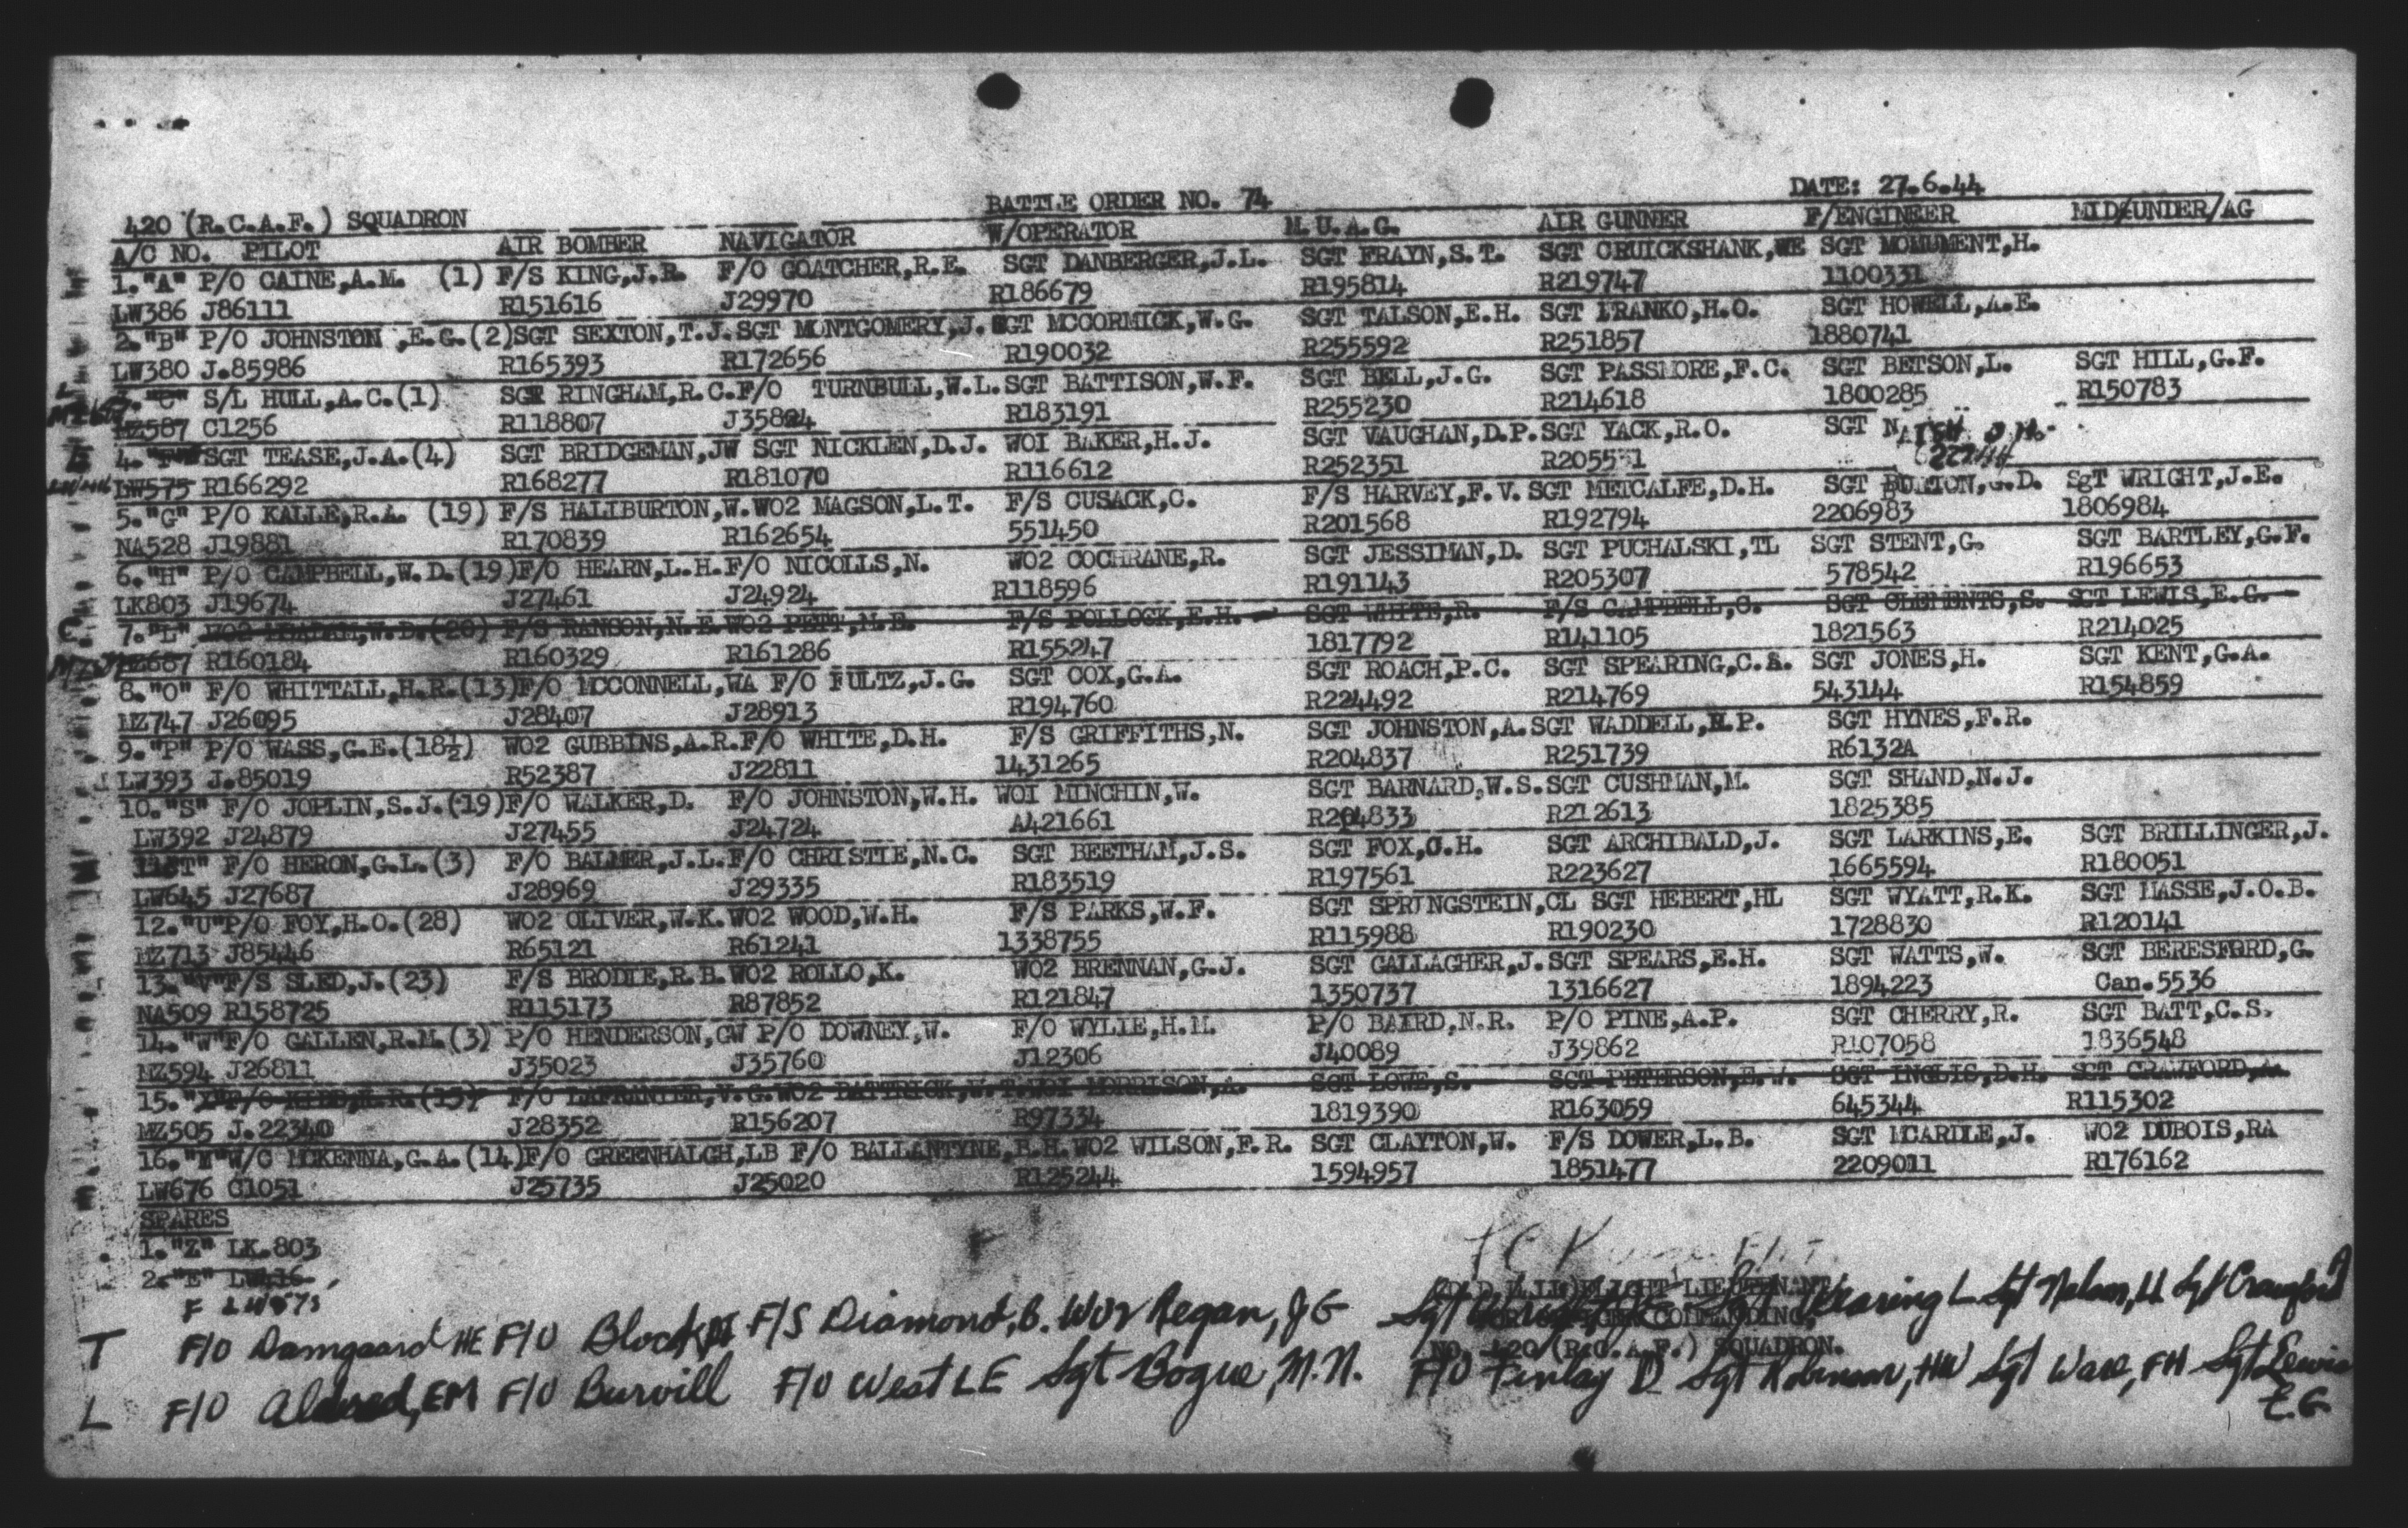 420 (R.C.A.F.) SQUADRON BATTLE ORDER NO. 74 DATE: 27.6.44
A/C NO. PILOT AIR BOMBER NAVIGATOR W/OPERATOR M.U.A.G. AIR GUNNER F/ENGINEER MID/UNDER/AG
1."A" P/O CAINE,A.M. (1) F/S KING,J.R. F/O GOATCHER,R.E. SGT DANBERGER,J.L. SGT FRAYN,S.T. SGT CRUICKSHANK,WE SGT MONUMENT,H.
LW386 J86111 R151616 J29970 R186679 R195814 R219747 1100331
2."B" P/O JOHNSTON ,E.G.(2)SGT SEXTON,T.J.SGT MONTGOMERY,J. SGT MCCORMICK,W.G. SGT TALSON,E.H. SGT FRANKO,H.O. SGT HOWELL,A.E.
LW380 J.85986 R165393 R172656 R190032 R255592 R251857 1880741
3."C" S/L HULL,A.C.(1) SGT RINGHAM,R.C.F/O TURNBULL,W.L.SGT BATTISON,W.F. SGT BELL,J.G. SGT PASSMORE,F.C. SGT BETSON,L. SGT HILL,G.F.
MZ587 C1256 R118807 J35804 R183191 R255230 R214618 1800285 R150783
4. SGT TEASE,J.A.(4) SGT BRIDGEMAN,JW SGT NICKLEN,D.J. WO1 BAKER,H.J. SGT VAUGHAN,D.P.SGT YACK,R.O. SGT
LW575 R166292 R168277 R181070 R116612 R252351 R205531
5."G" P/O KALLE,R.A. (19) F/S HALIBURTON,W.WO2 MAGSON,L.T. F/S CUSACK,C. F/S HARVEY,F.V.SGT METCALFE,D.H. SGT BURTON,G.D. SgT WRIGHT,J.E.
NA528 J19881 R170839 R162654 551450 R201568 R192794 2206983 1806984
6."H" P/O CAMPBELL,W.D.(19)F/O HEARN,L.H.F/O NICOLLS,N. WO2 COCHRANE,R. SGT JESSIMAN,D. SGT PUCHALSKI,TL SGT STENT,G. SGT BARTLEY,G.F.
LK803 J19674 J27461 J24924 R118596 R191143 R205307 578542 R196653
C. 7."L" F/S RANSON,N.E.WO2 PETT,M.E. F/S POLLOCK,E.H. SGT WHITE,R. F/S CAMPBELL,C. SGT CLEMENTS,S. SGT LEWIS,E.G.
MZ687 R160184 R160329 R161286 R155247 1817792 R141105 1821563 R214025
8."O" F/O WHITTALL,H.R.(13)F/O MCCONNELL,WA F/O FULTZ,J.G. SGT COX,G.A. SGT ROACH,P.C. SGT SPEARING,C.A. SGT JONES,H. SGT KENT,G.A.
MZ747 J26095 J28407 J28913 R194760 R224492 R214769 543144 R154859
9."P" P/O WASS,G.E.(18½) WO2 GUBBINS,A.R.F/O WHITE,D.H. F/S GRIFFITHS,N. SGT JOHNSTON,A.SGT WADDELL,H.P. SGT HYNES,F.R.
LW393 J.85019 R52387 J22811 1431265 R204837 R251739 R6132A
10."S" F/O JOPLIN,S.J.(19)F/O WALKER,D. F/O JOHNSTON,W.H. WO1 MINCHIN,W. SGT BARNARD,W.S.SGT CUSHMAN,M. SGT SHAND,N.J.
LW392 J24879 J27455 J24724 A421661 R204833 R212613 1825385
11"T" F/O HERON,G.L.(3) F/O BALMER,J.L.F/O CHRISTIE,N.C. SGT BEETHAM,J.S. SGT FOX,C.H. SGT ARCHIBALD,J. SGT LARKINS,E. SGT BRILLINGER,J.
LW645 J27687 J28969 J29335 R183519 R197561 R223627 1665594 R180051
12."U"P/O FOY,H.O.(28) WO2 OLIVER,W.K.WO2 WOOD,W.H. F/S PARKS,W.F. SGT SPRINGSTEIN,CL SGT HEBERT,HL SGT WYATT,R.K. SGT MASSE,J.O.B.
MZ713 J85446 R65121 R61241 1338755 R115988 R190230 1728830 R120141
13."V"F/S SLED,J.(23) F/S BRODIE,R.B.WO2 ROLLO,K. WO2 BRENNAN,G.J. SGT GALLAGHER,J.SGT SPEARS,E.H. SGT WATTS,W. SGT BERESFORD,G.
NA509 R158725 R115173 R87852 R121847 1350737 1316627 1894223 Can.5536
14."W"F/O GALLEN,R.M.(3) P/O HENDERSON,GW P/O DOWNEY,W. F/O WYLIE,H.M. P/O BAIRD,N.R. P/O PINE,A.P. SGT CHERRY,R. SGT BATT,C.S.
MZ594 J26811 J35023 J35760 J12306 J40089 J39862 R107058 1836548
15. F/O WO2 WO1 MORRISON,A. SGT LOWE,S. SGT PETERSON,E.W. SGT INGLIS,D.H. SGT CRAWFORD,A.
MZ505 J.22340 J28352 R156207 R97334 1819390 R163059 645344 R115302
16. W/C MCKENNA,G.A.(14)F/O GREENHALGH,LB F/O BALLANTYNE,B.H.WO2 WILSON,F.R. SGT CLAYTON,W. F/S DOWER,L.B. SGT MCARDLE,J. WO2 DUBOIS,RA
LW676 C1051 J25735 J25020 R125244 1594957 1851477 2209011 R176162
SPARES
1."Z" LK.803
2."E" LW416
F LW575
FLIGHT LIEUTENANT,
COMMANDING,
NO. 420 (R.C.A.F.) SQUADRON.
T F/O Damgaard HE F/O Block F/S Diamond, B. WO2 Regan, JG Sgt Sgt Wearing L Sgt Nelson, Sgt Crawford A
L F/O Aldred, EM F/O Burvill F/O West LE Sgt Bogue, M.N. F/O Finlay D Sgt Robinson, HW Sgt Ware, FH Sgt Lewis
E.G